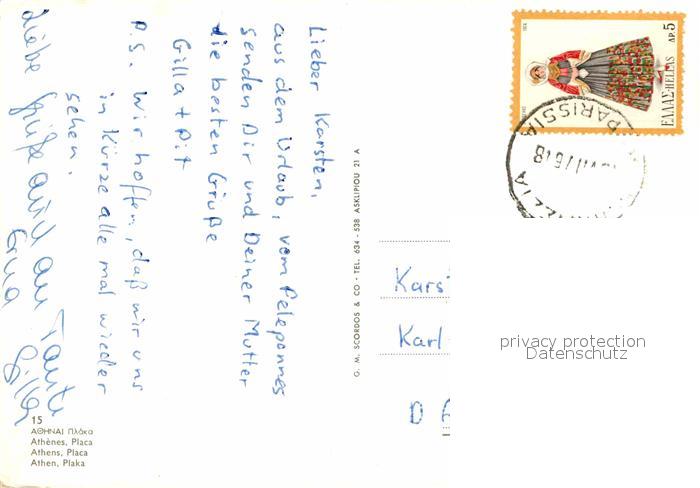 Lieber Karsten,
aus dem Urlaub, vom Peleponnes
senden Dir und Deiner Mutter
die besten Grüße
Gilla + Pit
P.S. Wir hoffen, daß wir uns
in Kürze alle mal wieder
sehen.
Liebe Grüße auch an Tante
Erna Gilla
15
ΑΘΗΝΑΙ Πλάκα
Athènes, Placa
Athens, Placa
Athen, Plaka
G. M. SCORDOS & CO · TEL. 634 - 538 ASKLIPIOU 21 A
ΔΡ. 5
ΕΛΛΑΣ-HELLAS
PARISSIA
Kars
Karl
D
privacy protection
Datenschutz